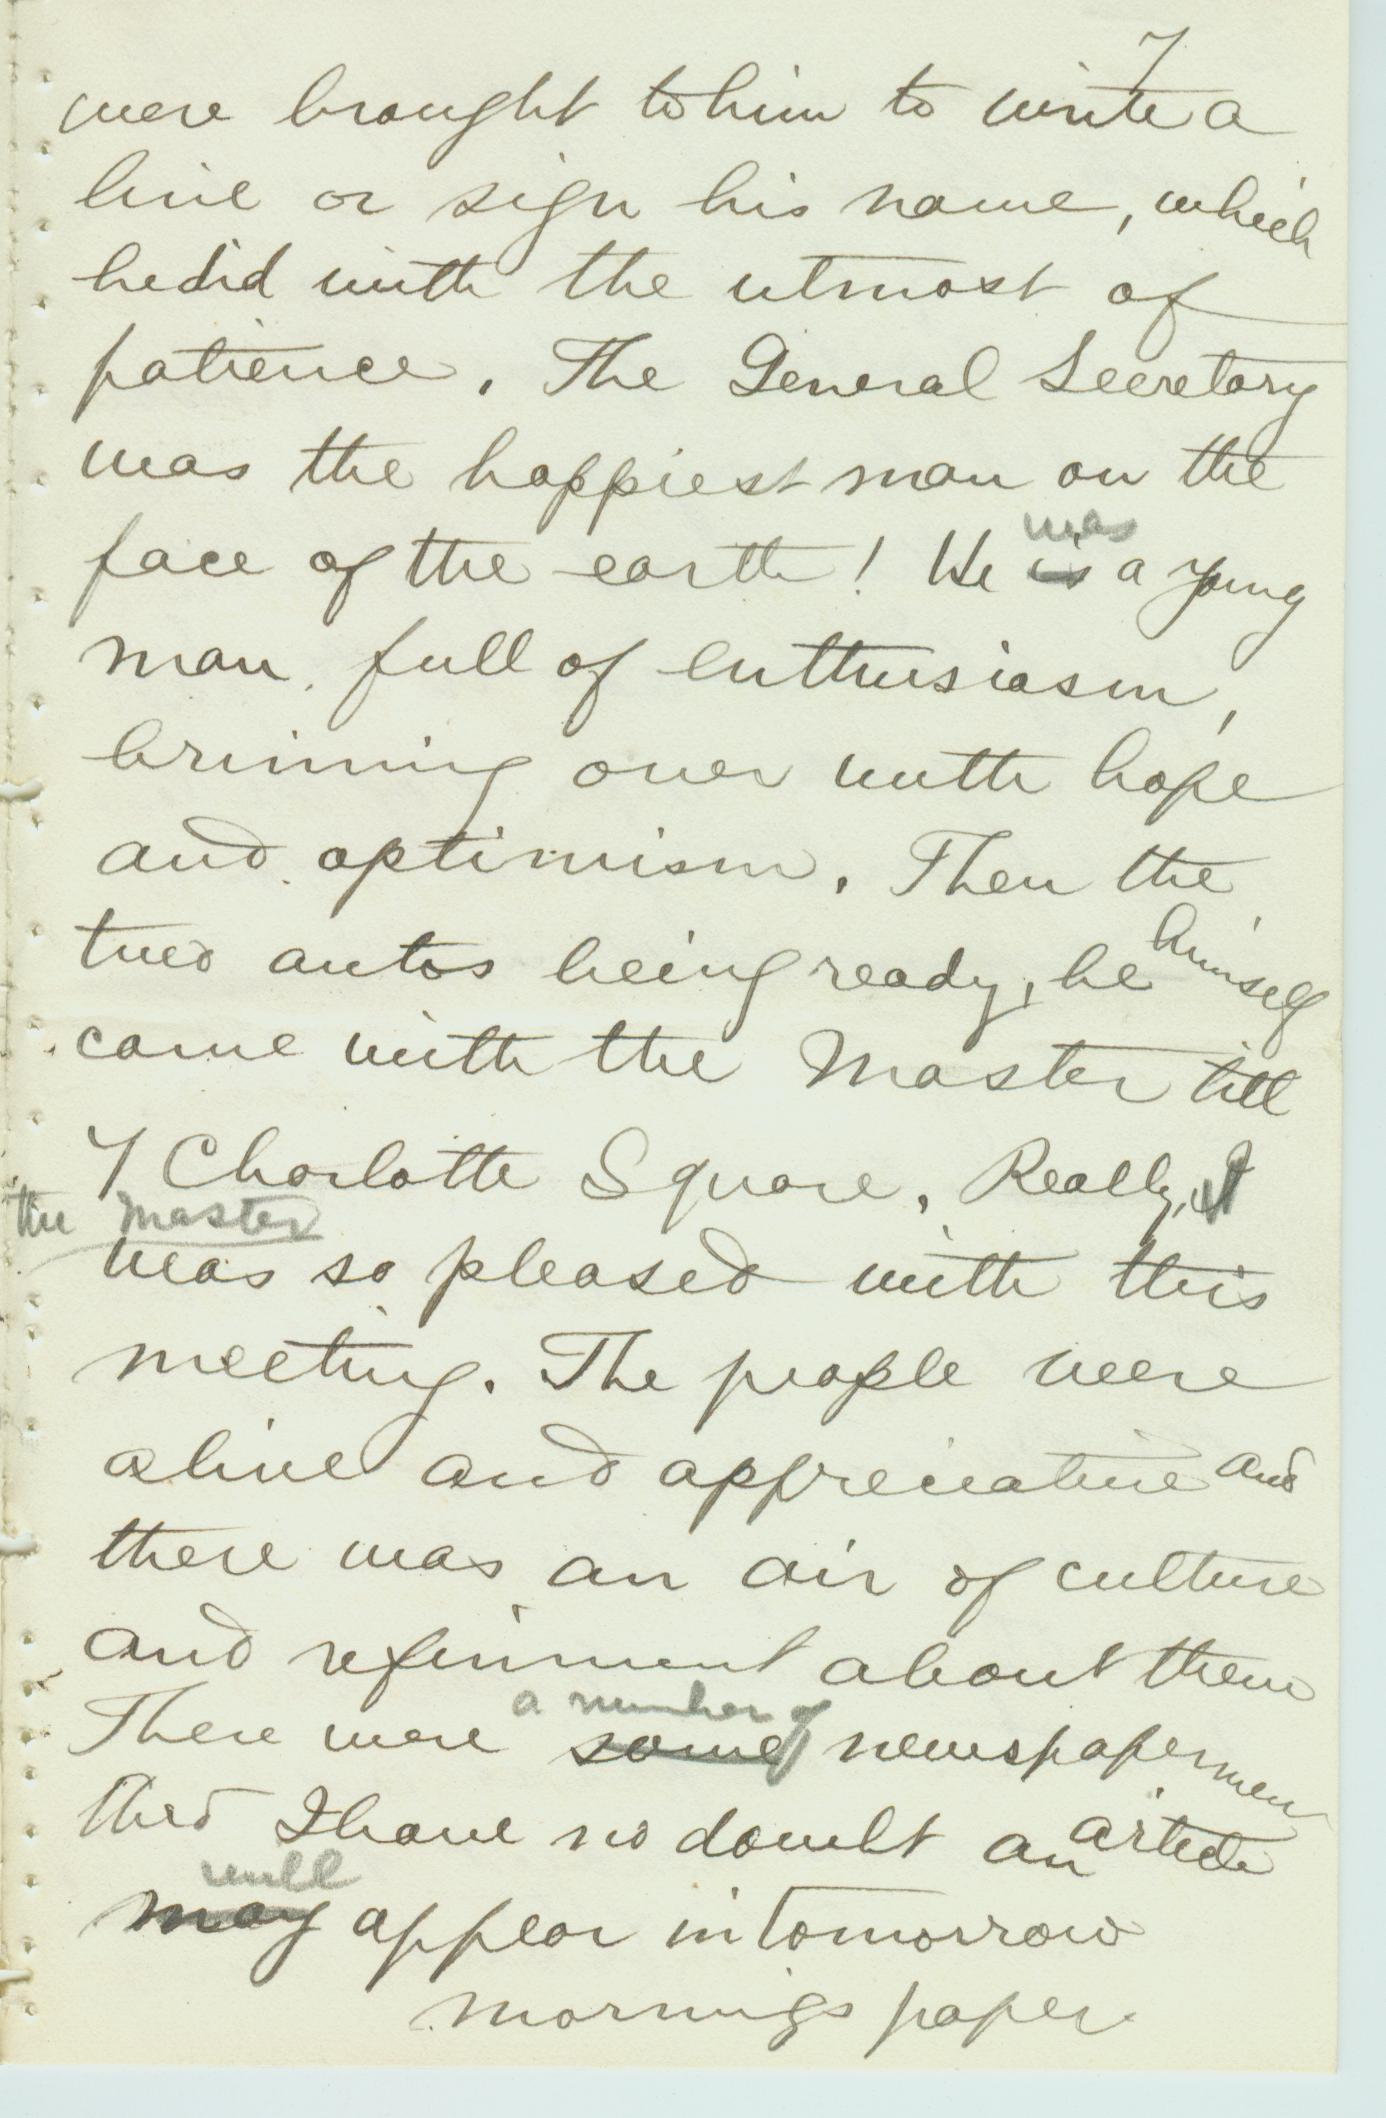 7
were brought to him to write a
line or sign his name, which
he did with the utmost of
patience. The General Secretary
was the happiest man on the
face of the earth! He ~~is~~ was a young
man, full of enthusiasm,
brimming over with hope
and optimism. Then the
two autos being ready, he himself
came with the Master till
7 Charlotte Square. Really,
the Master
was so pleased with this
meeting. The people were
alive and appreciative and
there was an air of culture
and refinment about them
There were ~~some~~ a number of newspapermen
I have no doubt an article
~~may~~ will appear in tomorrow
mornings paper.